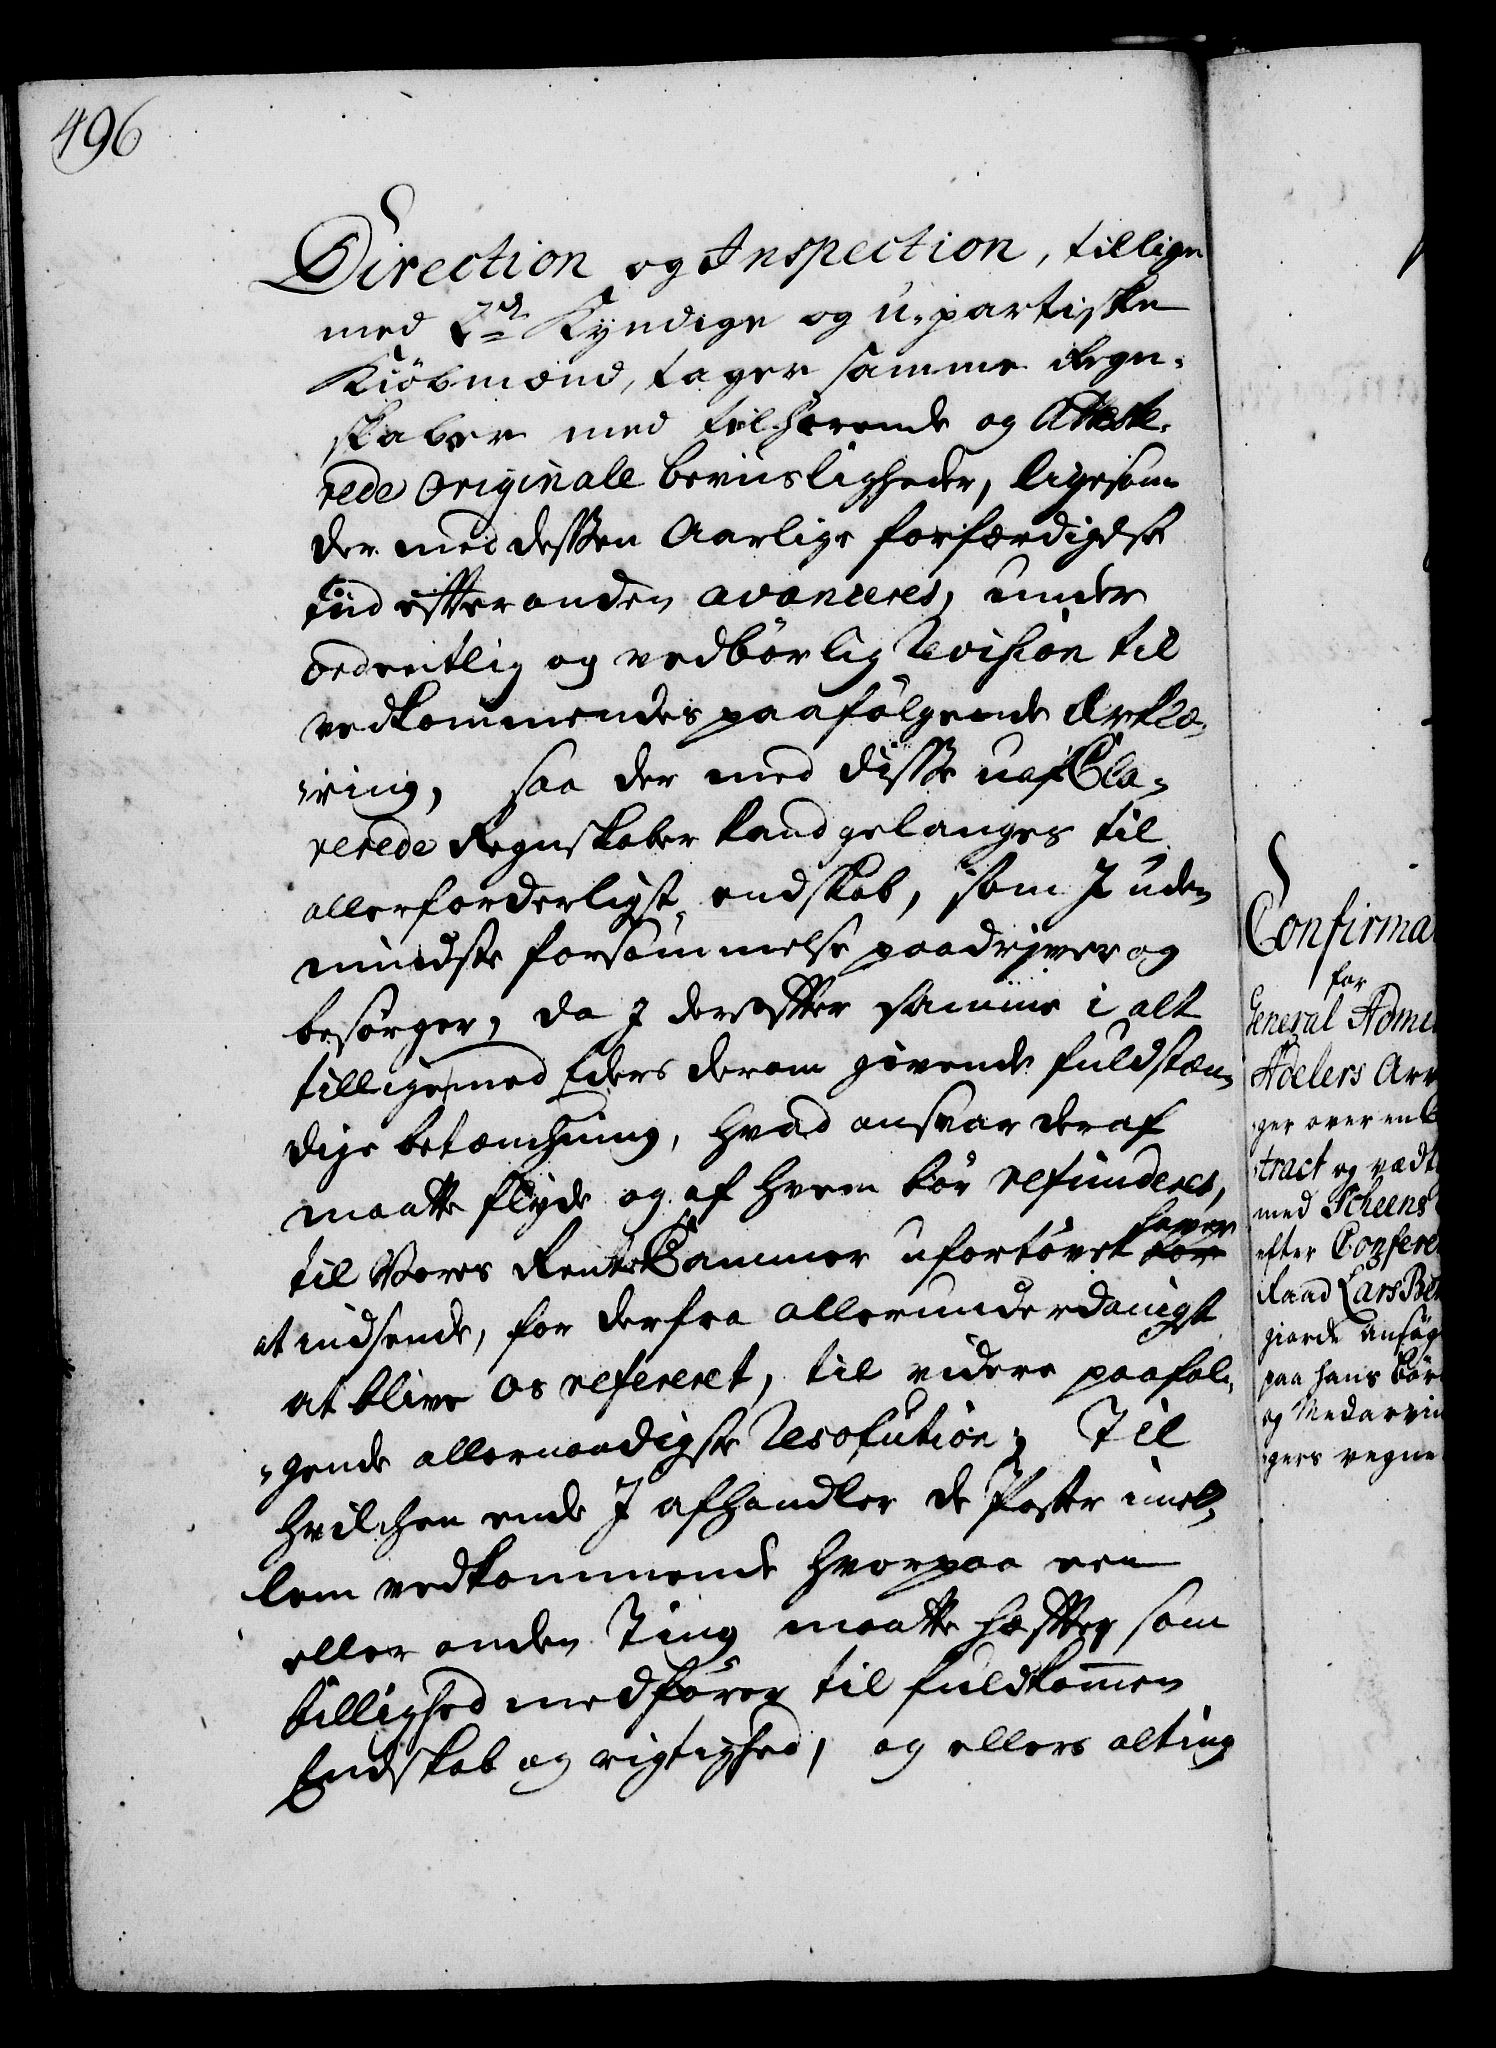 496
Direction og Inspection, tillige
med 2de Kyndige og u-partiske
Kiöbmænd, tager samme Regn-
skaber med tilhörende og Atteste-
rede Originale beviisligheder, ligesom
der med dessen Aarlige forfærdigelse
tiid effter anden avanceres, under
ordentlig og vedbörlig Revision til
vedkommendes paafölgende Erklæ-
ring, saa der med disse uaf Cla-
rerede Regnskaber kand gelanges til
allerforderligst endskab, som I uden
mindste forsömmelse paadriver og
besörger, da I dereffter samme i alt
tilligemed Eders derom givende fuldstæn-
dige betænchning, hvad ansvar deraf
maatte flyde og af hvem bör refunderes,
til Vores RenteCammer ufortövet haver
at indsende, for derfra allerunderdanigst
at blive os refereret, til videre paaföl-
gende allernaadigste Resolution; Til
hvilchen ende I afhandler de Poster imel-
lem vedkommende hvorpaa een
eller anden Ting maatte hæffte, som
billighed medförer til fuldkommen
Endskab og rigtighed, og ellers alting
Confirma
for
General Admi
Adelers Arv
ger over en
tract og vedt
med Scheens
efter Confere
Raad Lars Be
giorde ansög
paa hans bör
og Medarvin
gers vegne